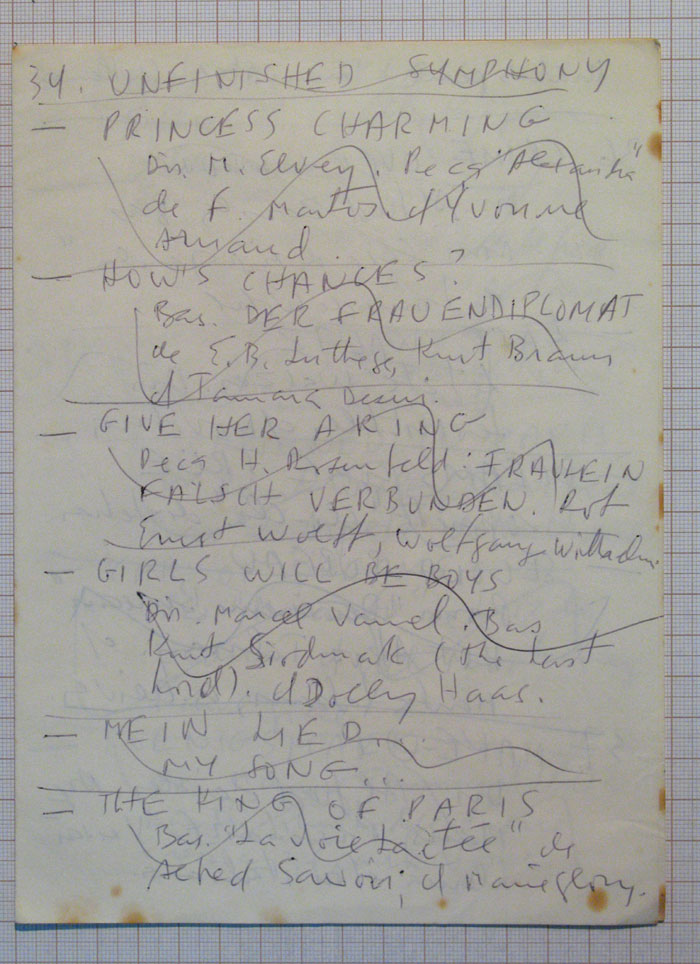 34. UNFINISHED SYMPHONY
— PRINCESS CHARMING
Din. M. Elvey. Pecs "Alexandra"
de F. Martos. d Yvonne
Arnaud.
— HOW'S CHANCES?
Bas. DER FRAUENDIPLOMAT
de E.B. Luthege, Kurt Braun
d Tamara Desni.
— GIVE HER A RING
Pecs H. Rosenfeld: FRAULEIN
FALSCH VERBUNDEN. Rot
Ernst Wolff, Wolfgang
— GIRLS WILL BE BOYS
Din. Marcel Varnel. Bas
Kurt Siodmak (the Last
Lord). d Dolly Haas.
— MEIN LIED...
MY SONG...
— THE KING OF PARIS
Bas. "La voie lactée" de
Alfred Savoir, d Marie Glory.